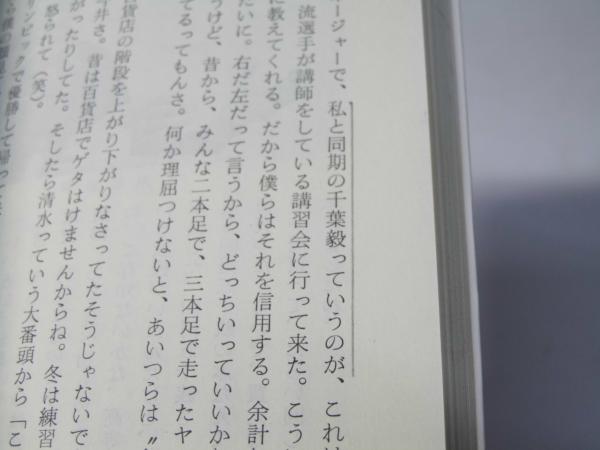 ージャーで、私と同期の千葉毅っていうのが、これは
流選手が講師をしている講習会に行って来た。こう
に教えてくれる。だから僕らはそれを信用する。余計
たいに。右だ左だって言うから、どっちいっていいか
うけど、昔から、みんな二本足で、三本足で走ったヤ
てるってもんさ。何か理屈つけないと、あいつらは〝
百貨店の階段を上がり下がりなさってたそうじゃないで
井さ。昔は百貨店でゲタはけませんからね。冬は練習
がったりしてた。そしたら清水っていう大番頭から「こ
怒られて（笑）。
リンピックで優勝して帰って